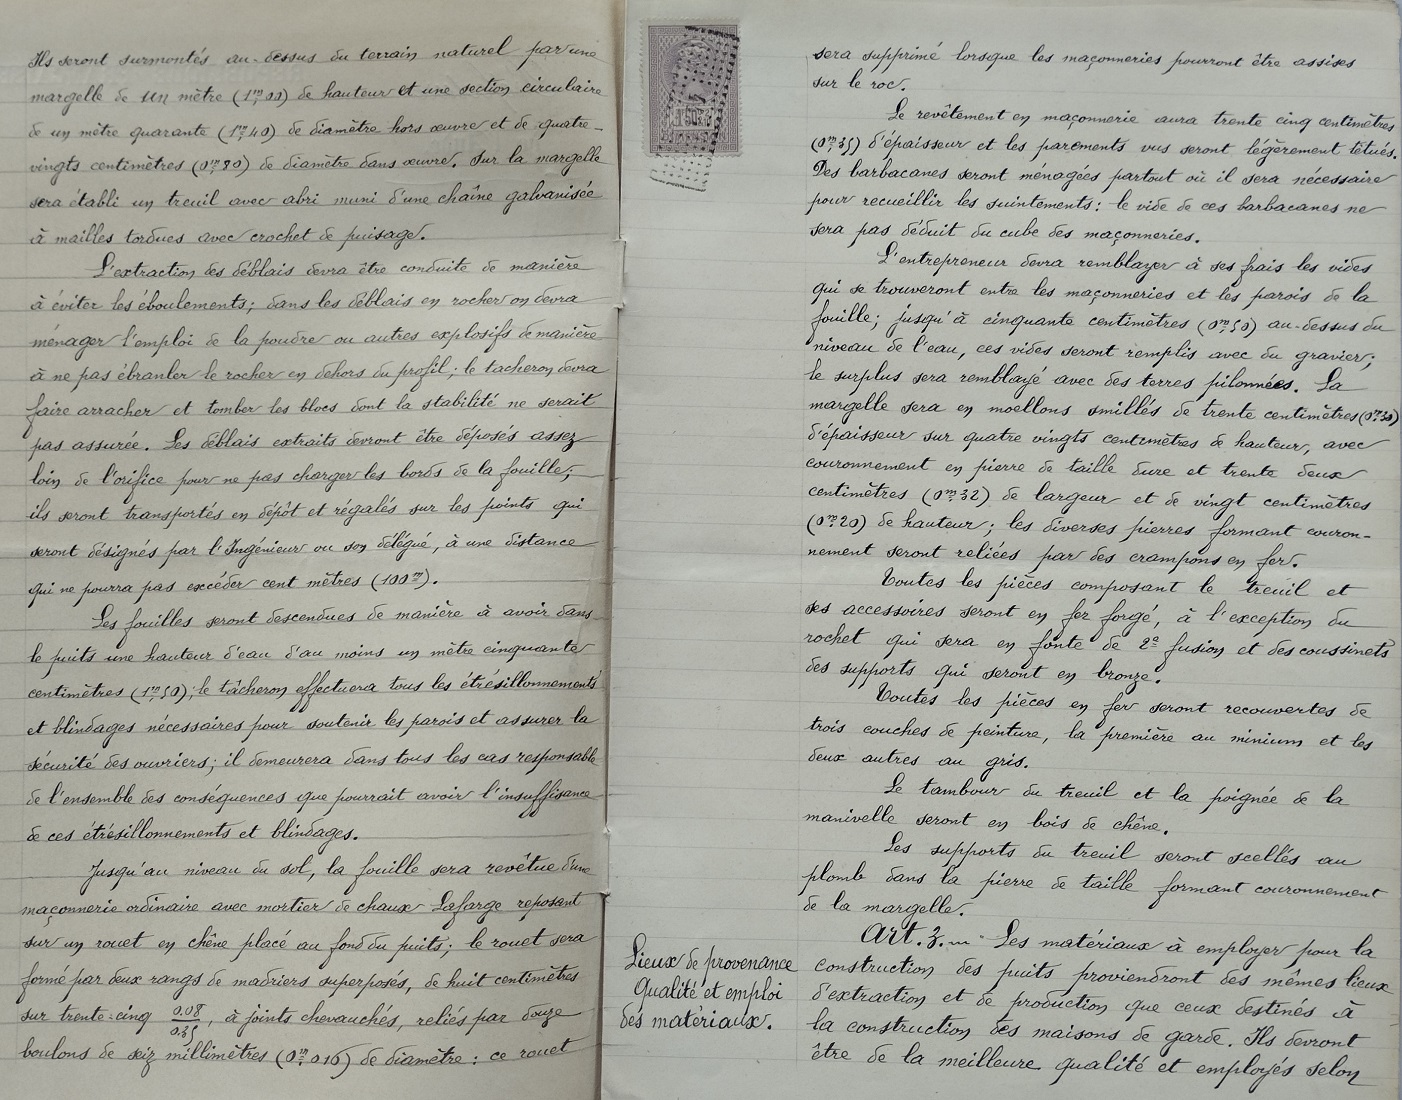 Ils seront surmontés au-dessus du terrain naturel par une
margelle de un mètre (1m,00) de hauteur et une section circulaire
de un mètre quarante (1m,40) de diamètre hors œuvre et de quatre-
vingts centimètres (0m,80) de diamètre dans œuvre. Sur la margelle
sera établi un treuil avec abri muni d'une chaîne galvanisée
à mailles tordues avec crochet de puisage.
L'extraction des déblais devra être conduite de manière
à éviter les éboulements; dans les déblais en rocher on devra
ménager l'emploi de la poudre ou autres explosifs de manière
à ne pas ébranler le rocher en dehors du profil; le tacheron devra
faire arracher et tomber les blocs dont la stabilité ne serait
pas assurée. Les déblais extraits devront être déposés assez
loin de l'orifice pour ne pas charger les bords de la fouille;
ils seront transportés en dépôt et régalés sur les points qui
seront désignés par l'Ingénieur ou son délégué, à une distance
qui ne pourra pas excéder cent mètres (100m).
Les fouilles seront descendues de manière à avoir dans
le puits une hauteur d'eau d'au moins un mètre cinquante
centimètres (1m,50); le tâcheron effectuera tous les étrésillonnements
et blindages nécessaires pour soutenir les parois et assurer la
sécurité des ouvriers; il demeurera dans tous les cas responsable
de l'ensemble des conséquences que pourrait avoir l'insuffisance
de ces étrésillonnements et blindages.
Jusqu'au niveau du sol, la fouille sera revêtue d'une
maçonnerie ordinaire avec mortier de chaux Lafarge reposant
sur un rouet en chêne placé au fond du puits; le rouet sera
formé par deux rangs de madriers superposés, de huit centimètres
sur trente-cinq 0.08/0.35, à joints chevauchés, reliés par douze
boulons de seiz millimètres (0m,016) de diamètre: ce rouet
sera supprimé lorsque les maçonneries pourront être assises
sur le roc.
Le revêtement en maçonnerie aura trente cinq centimètres
(0m,35) d'épaisseur et les parements vus seront légèrement têtués.
Des barbacanes seront ménagées partout où il sera nécessaire
pour recueillir les suintements: le vide de ces barbacanes ne
sera pas déduit du cube des maçonneries.
L'entrepreneur devra remblayer à ses frais les vides
qui se trouveront entre les maçonneries et les parois de la
fouille; jusqu'à cinquante centimètres (0m,50) au-dessus du
niveau de l'eau, ces vides seront remplis avec du gravier;
le surplus sera remblayé avec des terres pilonnées. La
margelle sera en moellons smillés de trente centimètres (0m,30)
d'épaisseur sur quatre vingts centimètres de hauteur, avec
couronnement en pierre de taille dure et trente deux
centimètres (0m,32) de largeur et de vingt centimètres
(0m,20) de hauteur; les diverses pierres formant couron-
nement seront reliées par des crampons en fer.
Toutes les pièces composant le treuil et
ses accessoires seront en fer forgé, à l'exception du
rochet qui sera en fonte de 2e fusion et des coussinets
des supports qui seront en bronze.
Toutes les pièces en fer seront recouvertes de
trois couches de peinture, la première au minium et les
deux autres au gris.
Le tambour du treuil et la poignée de la
manivelle seront en bois de chêne.
Les supports du treuil seront scellés au
plomb dans la pierre de taille formant couronnement
de la margelle.
Lieux de provenance
Qualité et emploi
des matériaux.
Art. 3. — Les matériaux à employer pour la
construction des puits proviendront des mêmes lieux
d'extraction et de production que ceux destinés à
la construction des maisons de garde. Ils devront
être de la meilleure qualité et employés selon